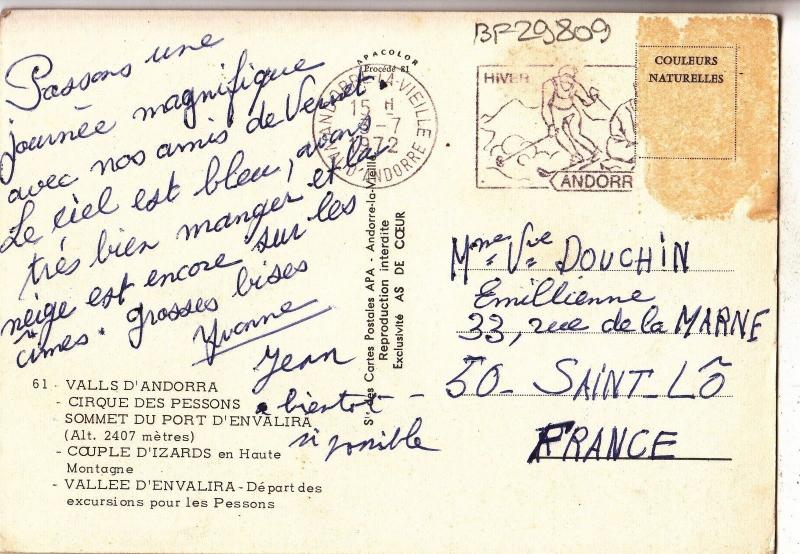 BF29809
APACOLOR
Procédé 61
COULEURS
NATURELLES
HIVER
ANDORR
ANDORRE-LA-VIEILLE
15 H
-7
1972
D'ANDORRE
Passons une
journée magnifique
avec nos amis de Vernet
Le ciel est bleu, avons
très bien manger et la
neige est encore sur les
cimes. grosses bises
Yvonne
Jean
a bientot -
si possible
Mme Vve DOUCHIN
Emillienne
33, rue de la MARNE
50 - SAINT-LÔ
FRANCE
61 - VALLS D'ANDORRA
- CIRQUE DES PESSONS
SOMMET DU PORT D'ENVALIRA
(Alt. 2407 mètres)
- COUPLE D'IZARDS en Haute
Montagne
- VALLEE D'ENVALIRA - Départ des
excursions pour les Pessons
des Cartes Postales APA - Andorre-la-Vieille
Reproduction interdite
Exclusivité AS DE CŒUR